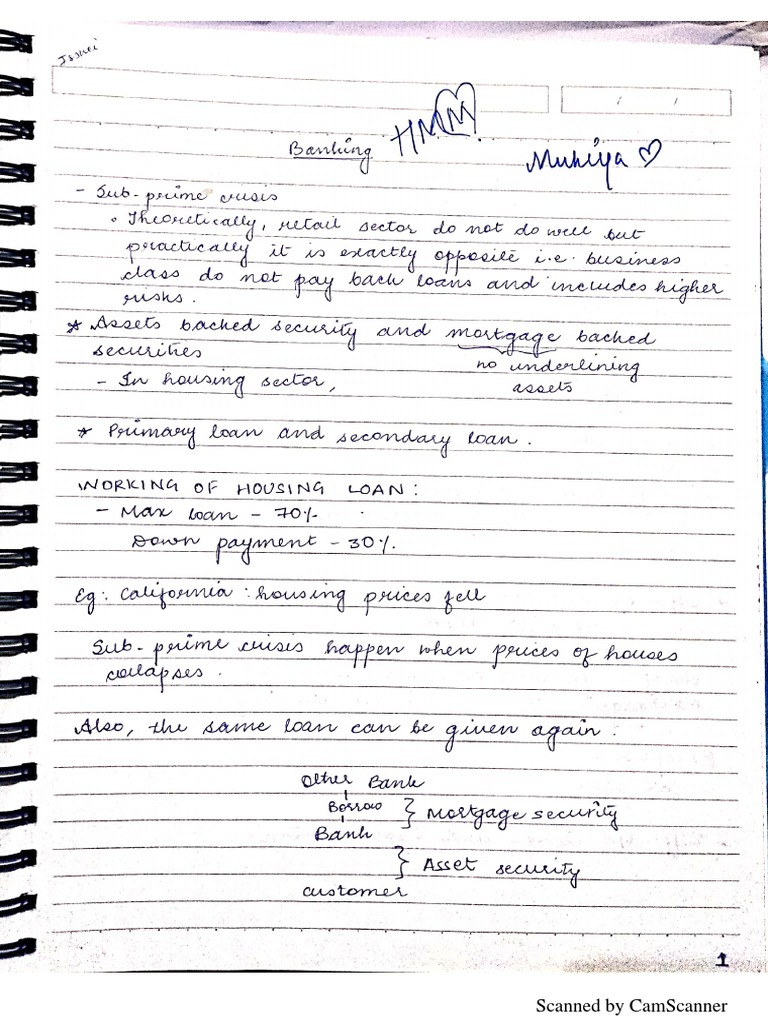 Banking
HMM
Muhiya
- Sub-prime crisis
• Theoretically, retail sector do not do well but
practically it is exactly opposite i.e. business
class do not pay back loans and includes higher
risks.
* Assets backed security and mortgage backed
securities
no underlining
assets
- In housing sector,
* Primary loan and secondary loan.
WORKING OF HOUSING LOAN:
- Max loan - 70%
Down payment - 30%.
Eg: California : housing prices fell
Sub-prime crisis happen when prices of houses
collapses.
Also, the same loan can be given again.
Other Bank
Borrow } Mortgage security
Bank
} Asset security
customer
1
Scanned by CamScanner